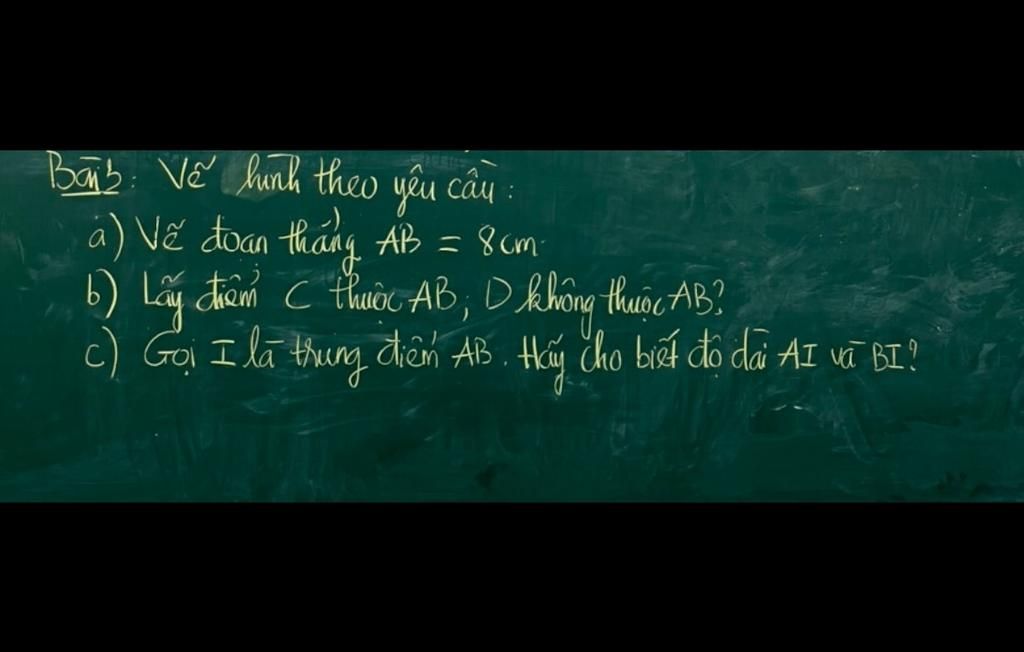 Bài 3: Vẽ hình theo yêu cầu:
a) Vẽ đoạn thẳng AB = 8cm.
b) Lấy điểm C thuộc AB, D không thuộc AB?
c) Gọi I là trung điểm AB. Hãy cho biết độ dài AI và BI?